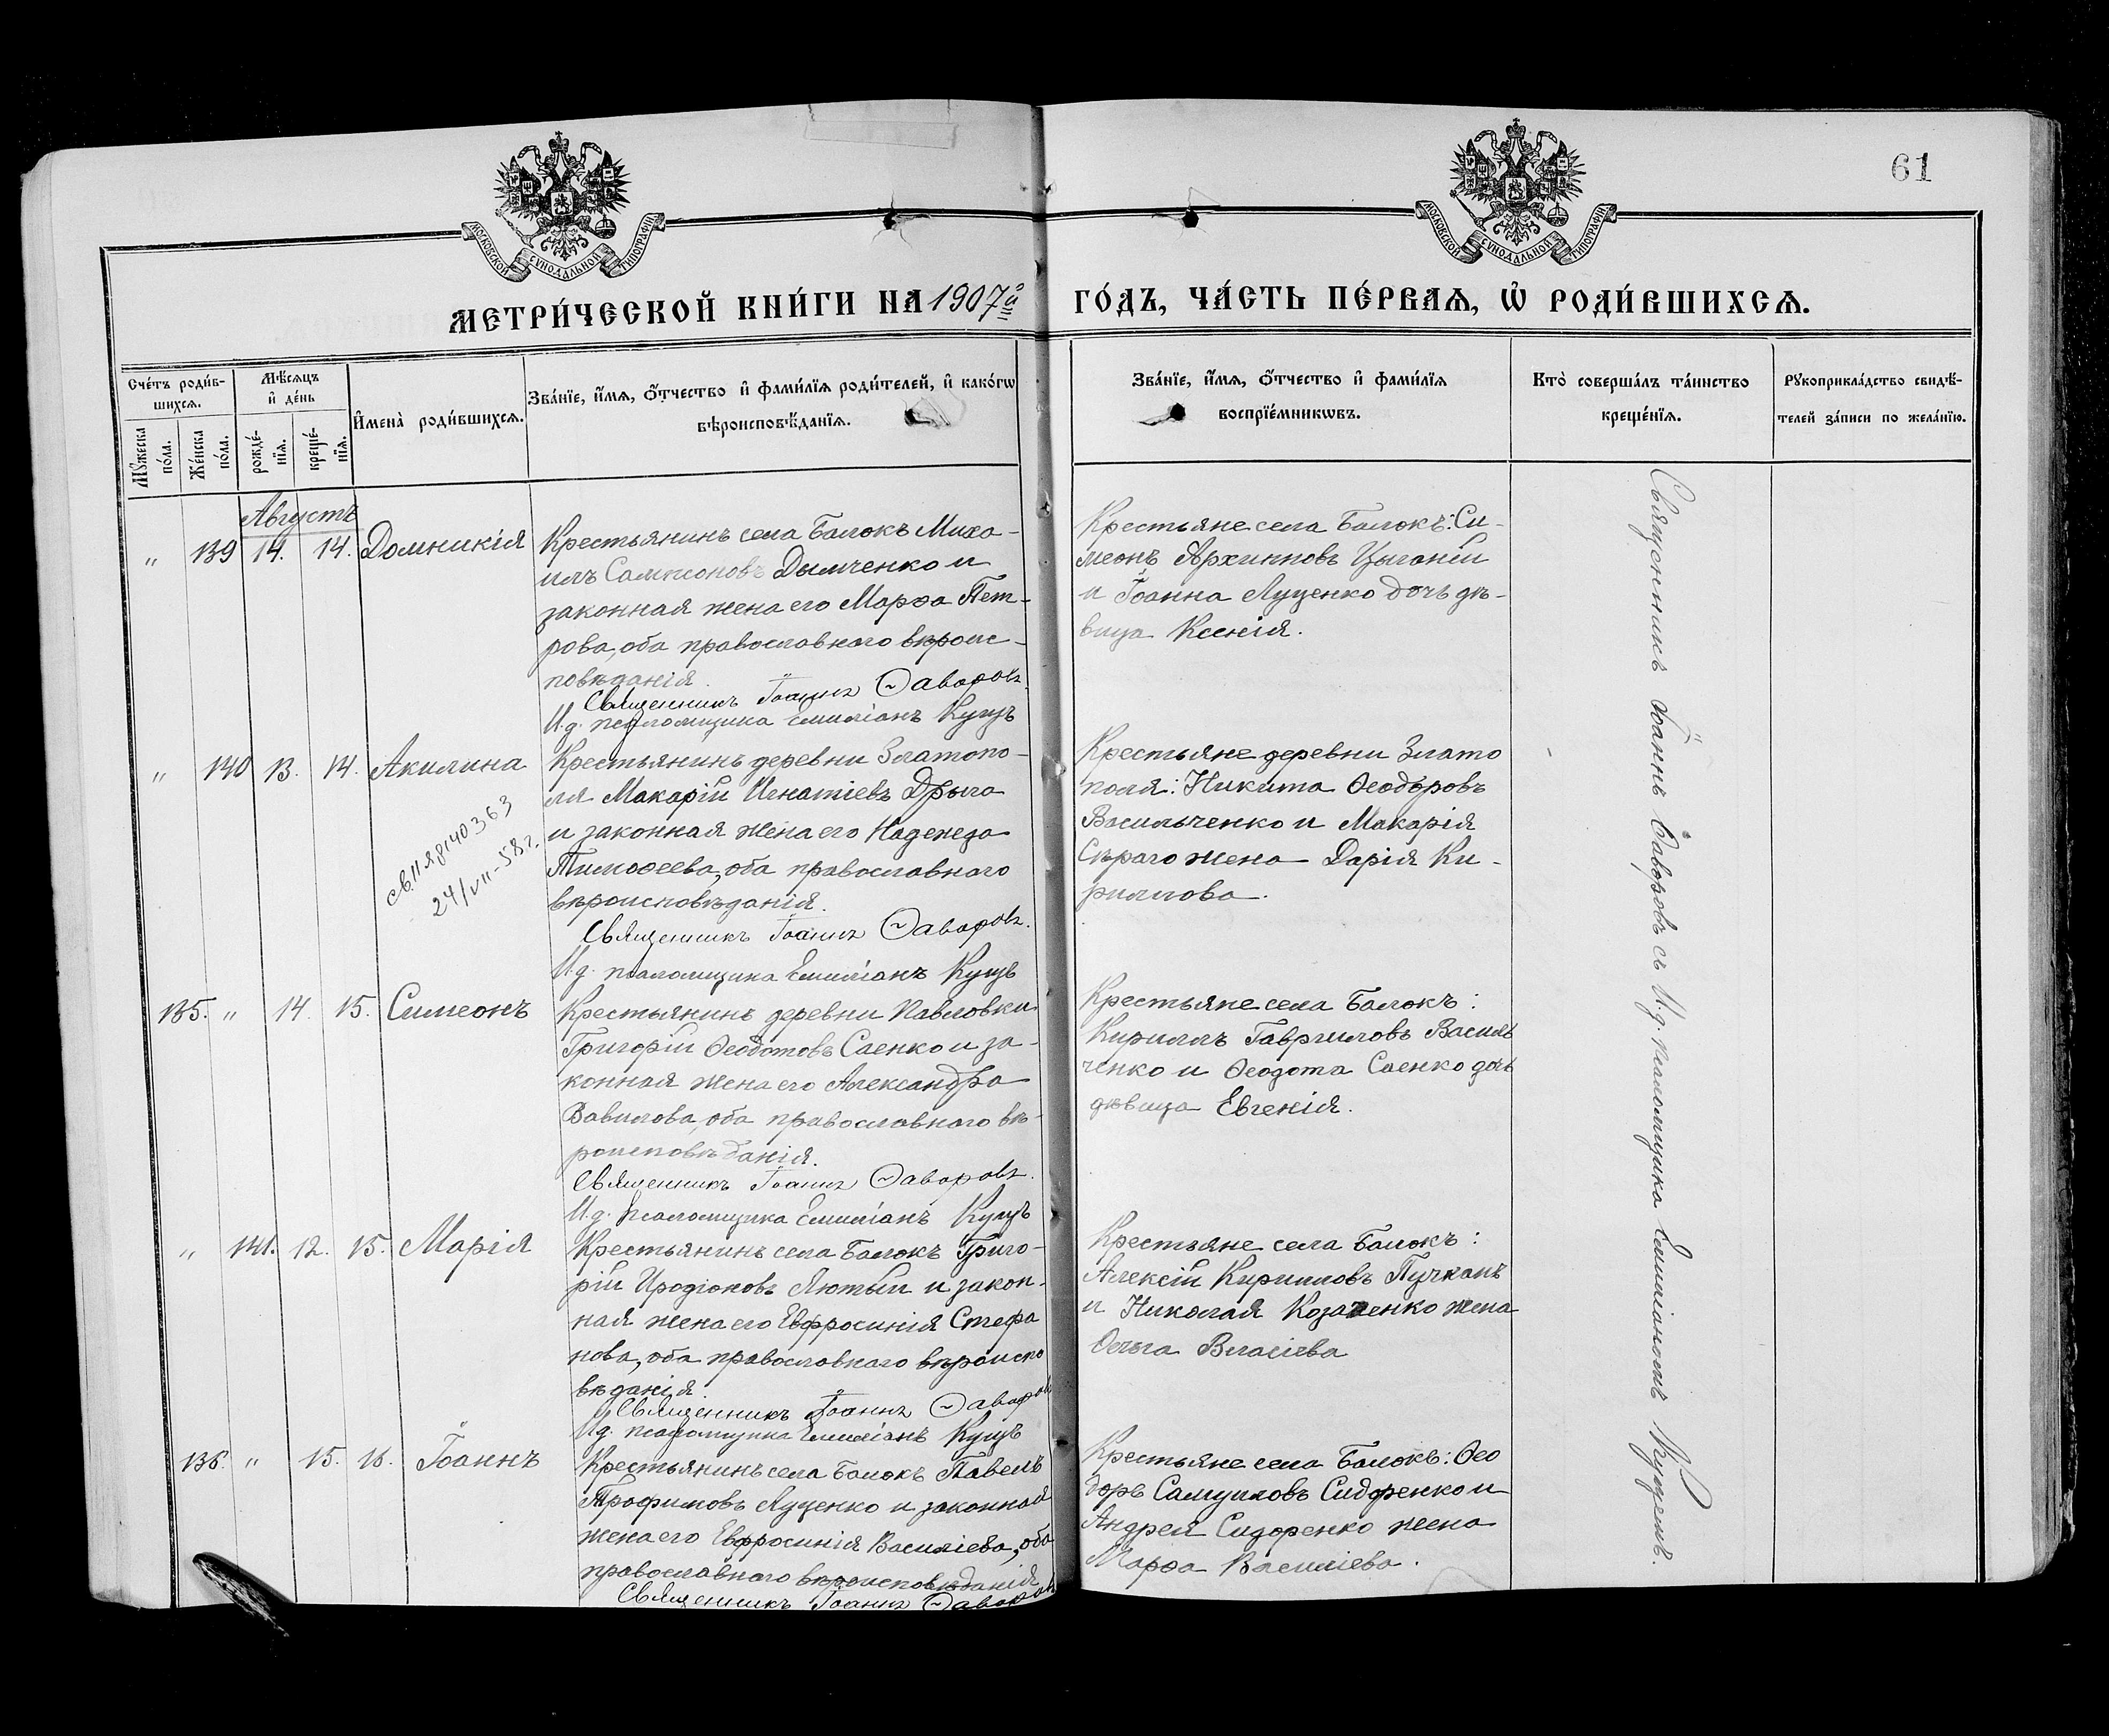 61
МОСКОВСКОЙ СѴНОДАЛЬНОЙ ТИПОГРАФІИ
МОСКОВСКОЙ СѴНОДАЛЬНОЙ ТИПОГРАФІИ
МЕТРИ́ЧЕСКОЙ КНИ́ГИ НА 1907й ГО́ДЪ, ЧА́СТЬ ПЕ́РВАѦ, Ѡ҆ РОДИ́ВШИХСѦ.
Сче́тъ роди́в-
шихсѧ.
Мꙋ́жеска по́ла.
Же́нска по́ла.
Мѣ́сѧцъ и҆ де́нь
рожде́-нїѧ.
креще́-нїѧ.
И҆мена̀ роди́вшихсѧ.
Зва́нїе, и҆́мѧ, ѻ҆́тчество и҆ фами́лїѧ роди́телей, и҆ како́гѡ
вѣроисповѣ́данїѧ.
Зва́нїе, и҆́мѧ, ѻ҆́тчество и҆ фами́лїѧ
воспрїе́мникѡвъ.
Кто̀ соверша́лъ та́инство
креще́нїѧ.
Рꙋкоприкла́дство свидѣ́-
телей за́писи по жела́нїю.
Августъ
" 139 14. 14. Домникія
Крестьянинъ села Балокъ Миха-
илъ Сампсоновъ Дымченко и
законная жена его Марѳа Пет-
рова, оба православнаго вѣроис-
повѣданія.
Священникъ Іоаннъ Ѳаворовъ.
И.д. псаломщика Емиліанъ Куцъ
Крестьяне села Балокъ: Си-
меонъ Архипповъ Цыганій
и Іоанна Луценко дочь дѣ-
вица Ксенія.
" 140 13. 14. Акилина
св. II ЯЯ 140363
24/VII-58г.
Крестьянинъ деревни Златопо-
ля Макарій Игнатіевъ Дрыга
и законная жена его Надежда
Тимоѳеева, оба православнаго
вѣроисповѣданія.
Священникъ Іоаннъ Ѳаворовъ.
И.д. псаломщика Емиліанъ Куцъ
Крестьяне деревни Злато
поля: Никита Ѳеодоровъ
Васильченко и Макарія
Сѣраго жена Дарія Ки-
риллова.
135. " 14. 15. Симеонъ
Крестьянинъ деревни Павловки
Григорій Ѳеодотовъ Саенко и за-
конная жена его Александра
Вавилова, оба православнаго вѣ-
роисповѣданія.
Священникъ Іоаннъ Ѳаворовъ.
И.д. псаломщика Емиліанъ Куцъ
Крестьяне села Балокъ:
Кириллъ Гавриловъ Василь
ченко и Ѳеодота Саенко дочь
дѣвица Евгенія.
" 141. 12. 15. Марія
Крестьянинъ села Балокъ Григо-
рій Иродіоновъ Лютый и закон-
ная жена его Евфросинія Стефа
нова, оба православнаго вѣроиспо
вѣданія.
Священникъ Іоаннъ Ѳаворовъ
И.д. псаломщика Емиліанъ Куцъ
Крестьяне села Балокъ:
Алексій Кирилловъ Пучканъ
и Николая Козаченко жена
Ольга Власіева
136. " 15. 16. Іоаннъ
Крестьянинъ села Балокъ Павелъ
Трофимовъ Луценко и законная
жена его Евфросинія Василіева, оба
православнаго вѣроисповѣданія
Священникъ Іоаннъ Ѳаворовъ
Крестьяне села Балокъ: Ѳео
доръ Самуиловъ Сидоренко и
Андрея Сидоренко жена
Марѳа Василіева.
Священникъ Іоаннъ Ѳаворовъ съ И.д. псаломщика Емиліаномъ Куцемъ.